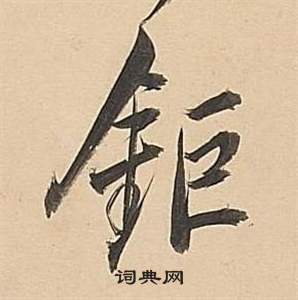 鉅
词典网